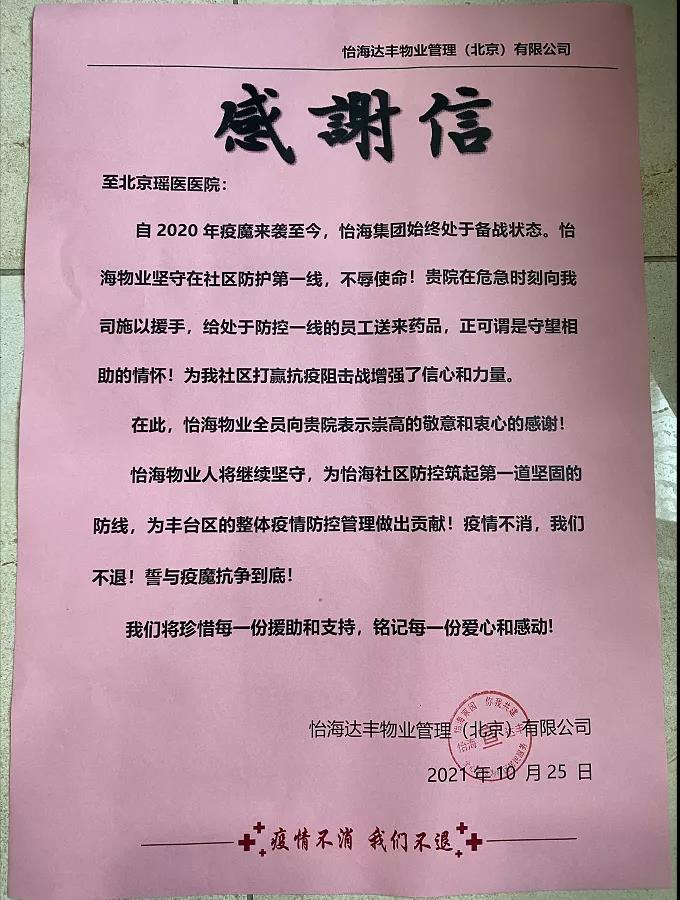 怡海达丰物业管理（北京）有限公司
感謝信
至北京瑶医医院：
自 2020 年疫魔来袭至今，怡海集团始终处于备战状态。怡
海物业坚守在社区防护第一线，不辱使命！贵院在危急时刻向我
司施以援手，给处于防控一线的员工送来药品，正可谓是守望相
助的情怀！为我社区打赢抗疫阻击战增强了信心和力量。
在此，怡海物业全员向贵院表示崇高的敬意和衷心的感谢！
怡海物业人将继续坚守，为怡海社区防控筑起第一道坚固的
防线，为丰台区的整体疫情防控管理做出贡献！疫情不消，我们
不退！誓与疫魔抗争到底！
我们将珍惜每一份援助和支持，铭记每一份爱心和感动！
怡海家园 你我共建
怡海达丰物业管理（北京）有限公司
怡海 宣 达丰
2021 年 10 月 25 日
疫情不消 我们不退